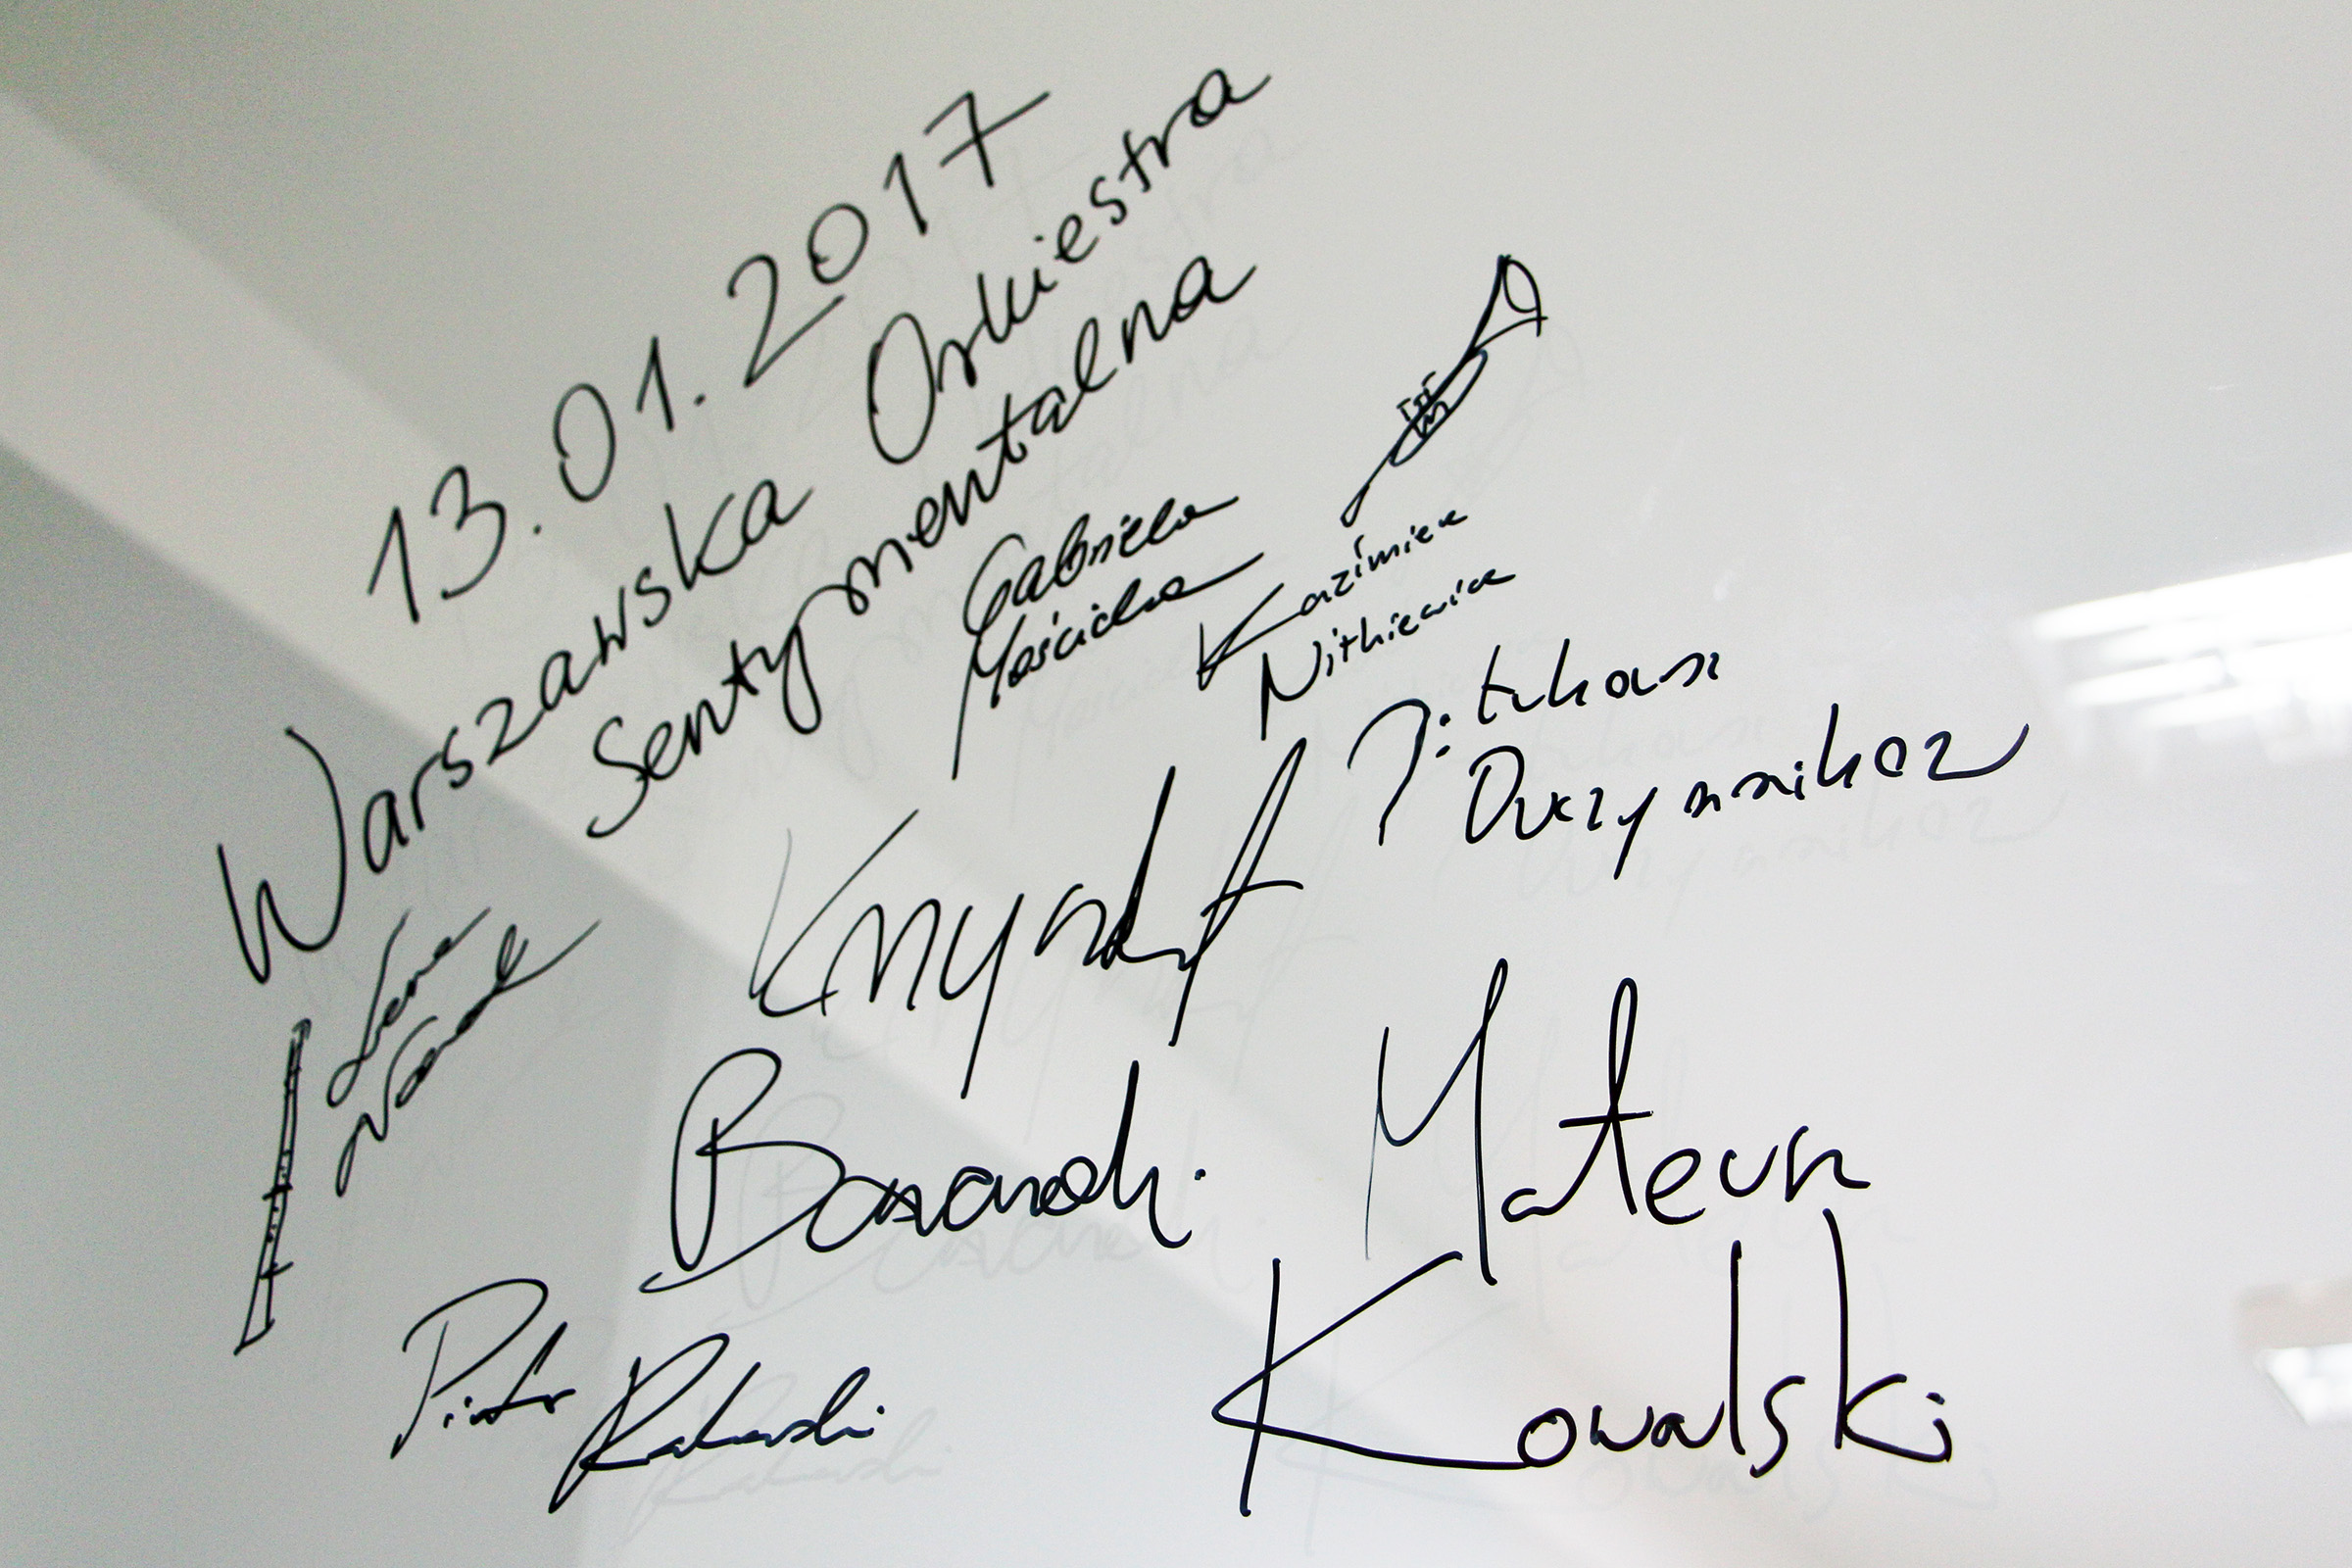 13.01.2017
Warszawska Orkiestra
Sentymentalna
Gabriela
Mościcka
Kazimierz
Nitkiewicz
Łukasz
Owczynnikow
Krzysztof
Piotr
Mateusz
Kowalski